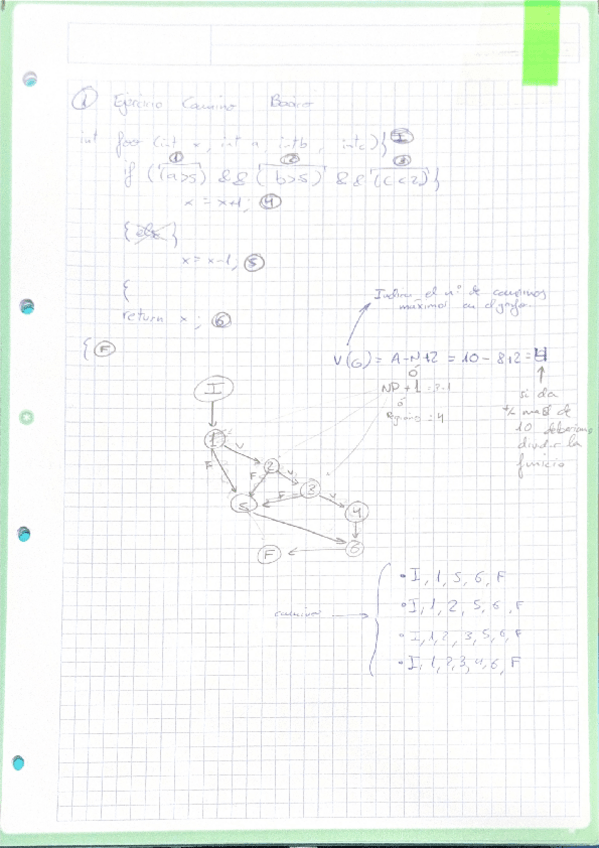 ① Ejercicio Camino Básico
int foo (int x, int a, int b, int c) } Ⓘ
① ② ③
if ((a>5) && (b>5) && (c<2)) }
x = x+1; ④
{ else }
x = x-1; ⑤
{
return x; ⑥
{ Ⓕ
Indica el nº de caminos
máximos en el grafo.
V(G) = A-N+2 = 10-8+2 = 4
ó
NP+1 = 3+1
ó
Regiones = 4
si da
+/- mas de
10 deberíamos
dividir la
función
I
1
V
F
2
V
F
3
V
F
5
4
6
F
caminos
• I, 1, 5, 6, F
• I, 1, 2, 5, 6, F
• I, 1, 2, 3, 5, 6, F
• I, 1, 2, 3, 4, 6, F